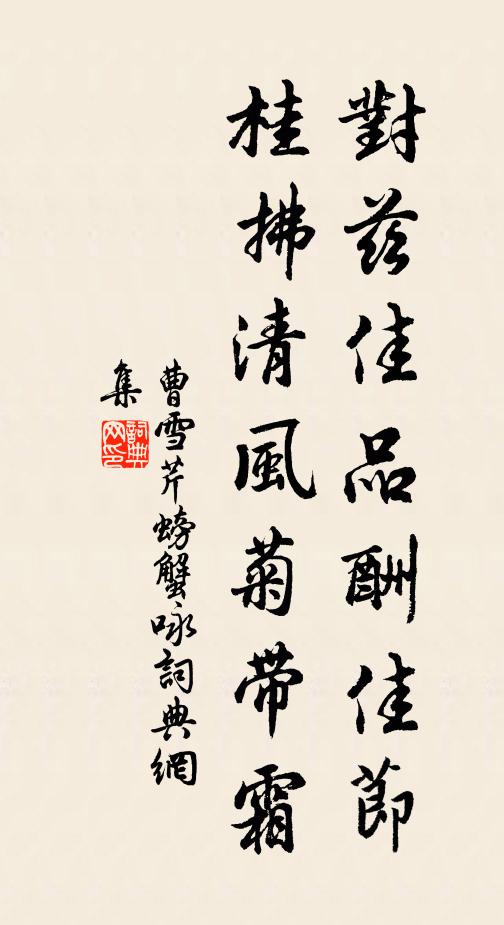 對茲佳品酬佳節
桂拂清風菊帶霜
曹雪芹螃蟹咏詞典網
集
詞典
网印